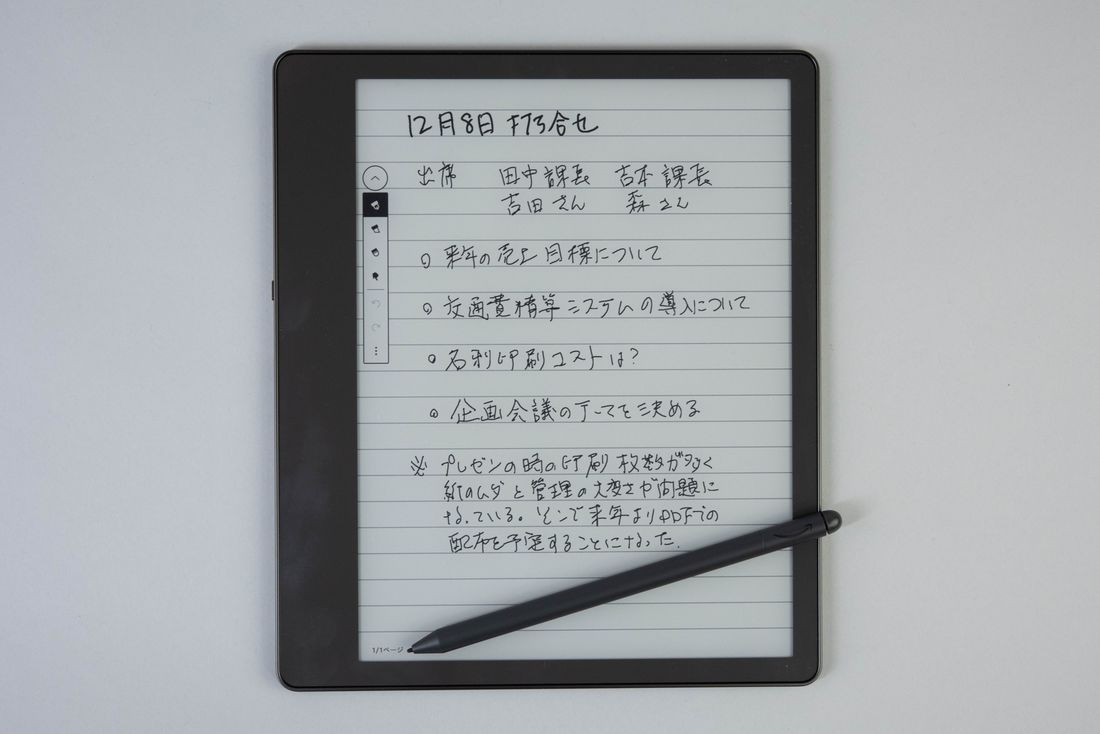 12月8日 打合せ
出席 田中課長 吉本課長
吉田さん 森さん
○ 来年の売上目標について
○ 交通費精算システムの導入について
○ 名刺印刷コストは?
○ 企画会議のテーマを決める
※ プレゼンの時の印刷枚数が多く
紙のムダと管理の大変さが問題に
なっている。そこで来年よりPDFでの
配布を予定することになった.
1/1ページ